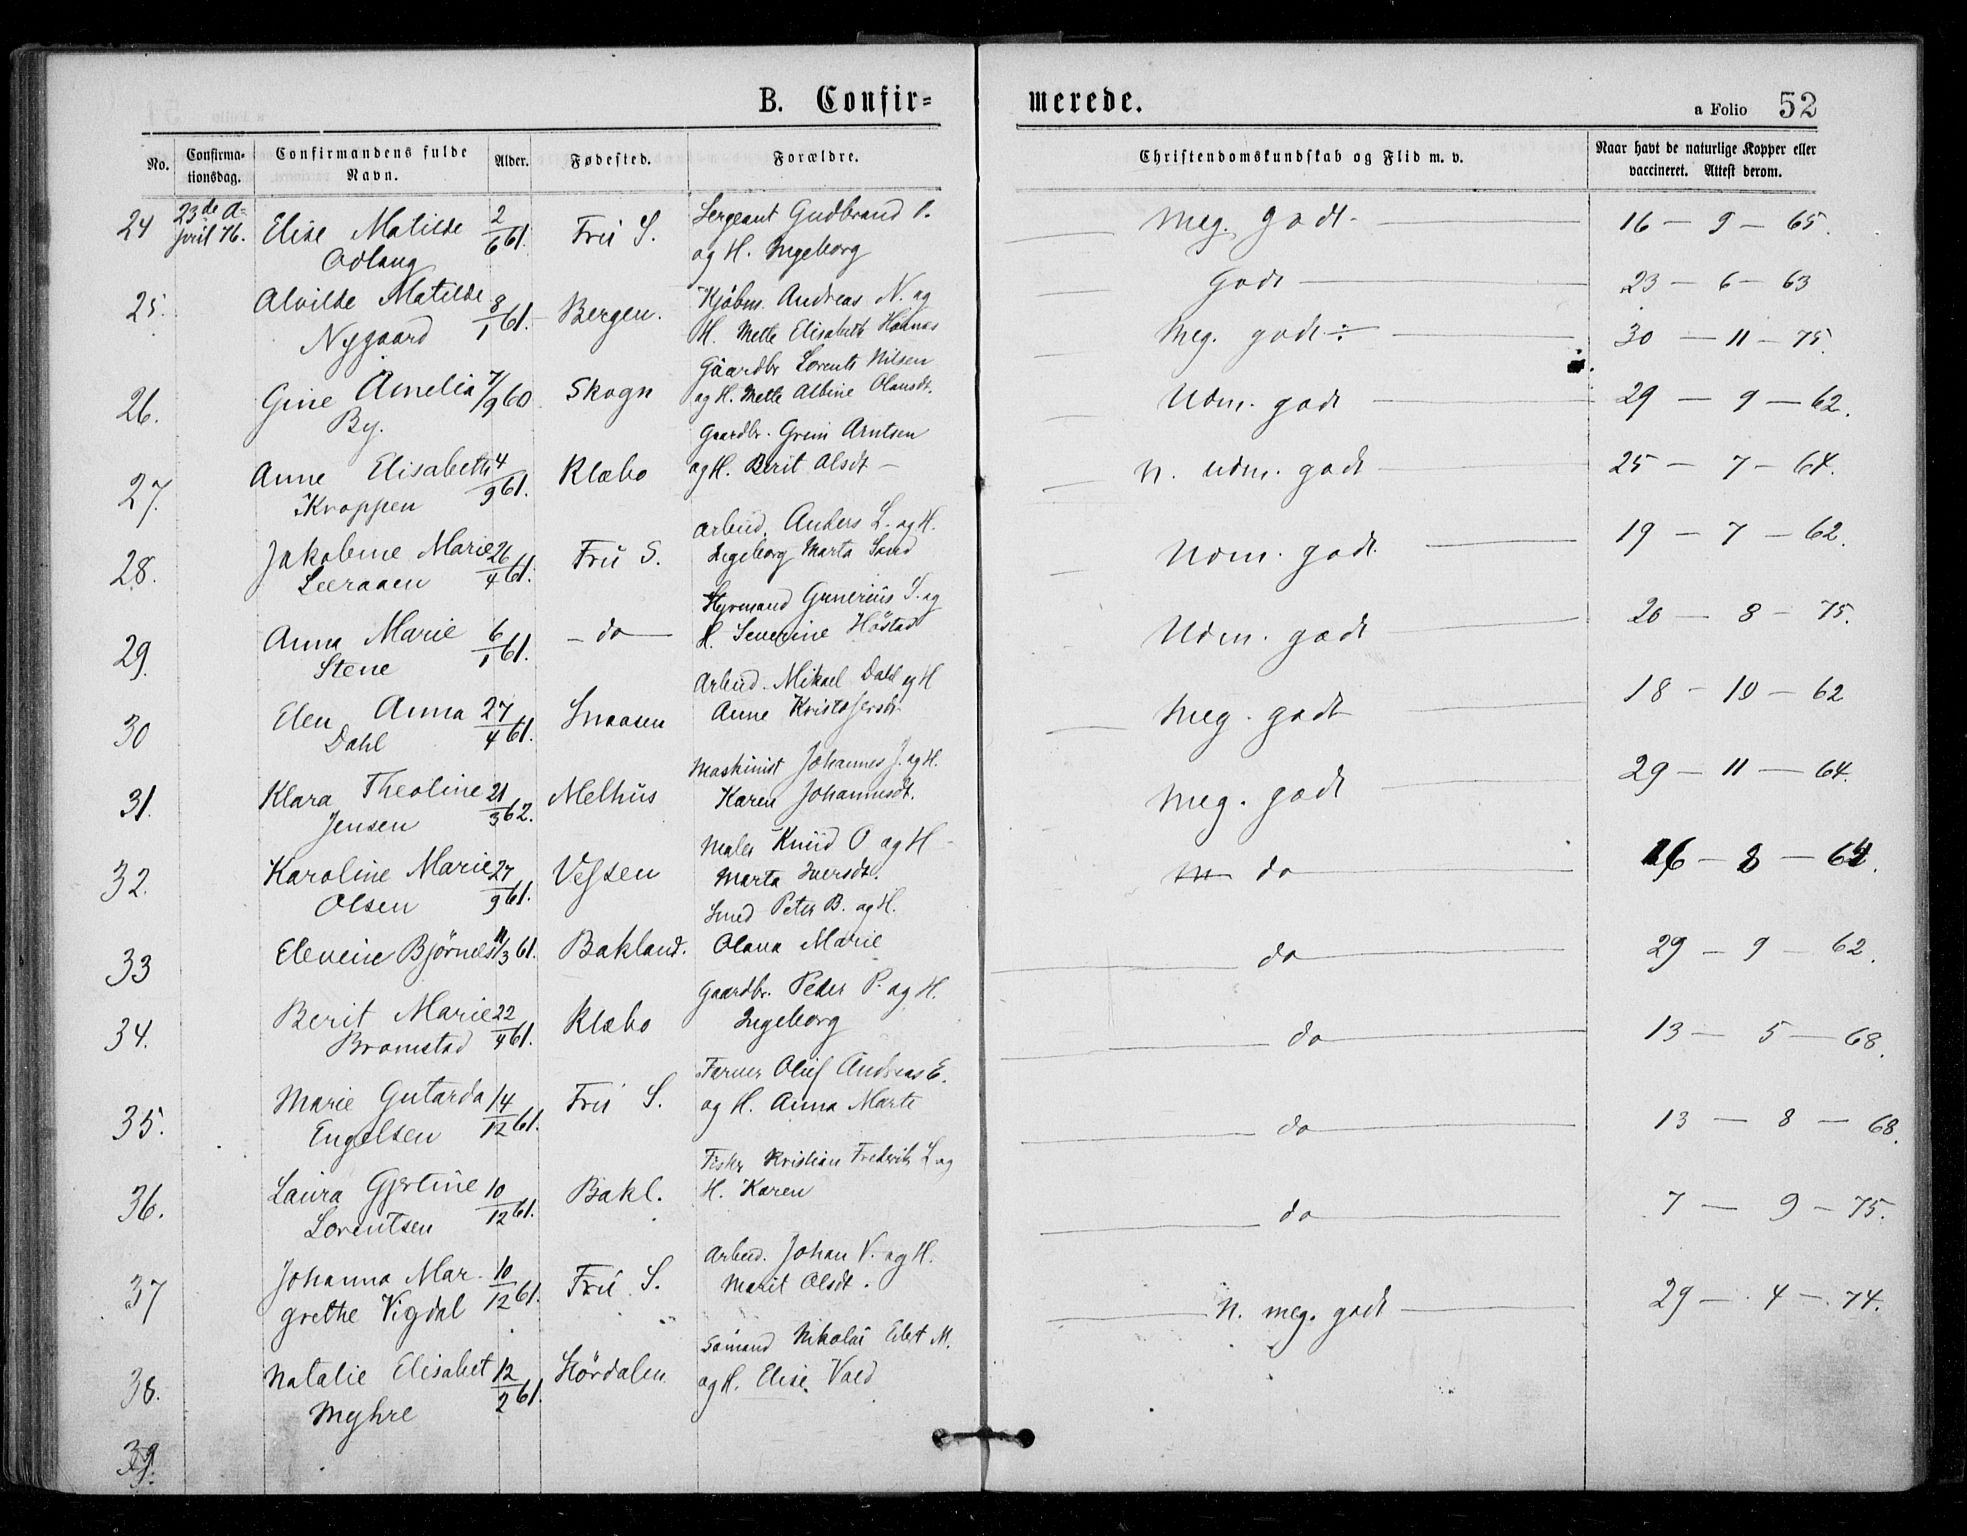 B. Confir=
merede.
a Folio 52
No. Confirma-tionsdag. Confirmandens fulde Navn. Alder. Fødested. Forældre. Christendomskundskab og Flid m. v. Naar havt de naturlige Kopper eller vaccineret. Attest derom.
24 23de A- Sergeant Gudbrand O. Meg. godt 16 - 9 - 65.
pril 76. Elise Matilde 2/6 61. Fru S. og H. Ingeborg
Odlaug
25. Alvilde Matilde 8/1 61. Bergen. Kjøbm. Andreas N. og Godt 23 - 6 - 63
Nygaard H. Mette Elisabeth Meg. godt ÷ 30 - 11 - 75.
Gaardbr Lorents Nilsen
26. Gine Amelia 7/9 60 Skogn og H. Mette Albine Olausdt. Udm. godt 29 - 9 - 62.
By. Gaardbr. Arntsen
27. Anne Elisabeth 4/9 61. Klæbo og H. Berit Olsdt - N. udm. godt 25 - 7 - 64.
Kroppen
Arbeid. Anders L. og H. 19 - 7 - 62.
28. Jakobine Marie 26/4 61. Fru S. Ingeborg Marta Udm. godt.
Leeraaen
Styrmand Gunerius S. og 20 - 8 - 75.
29. Anna Marie 6/1 61. - do - H. Severine Höstad Udm. godt
Stene
Arbeid. Mikael Dahl og H 18 - 10 - 62
30 Elen Anna 27/4 61. Snaasen Anne Kristofersdt. Meg. godt
Dahl
Maskinist Johannes J. og H. 29 - 11 - 64.
31. Klara Theoline 21/3 62. Melhus Karen Johannesdt. Meg. godt
Jensen
Maler Knud O og H
32. Karoline Marie 27/9 61. Vefsen Marta Iversdt. do
Olsen
Smed Peter B. og H.
33 Björnes 11/3 61. Bakland. Olava Marie do 29 - 9 - 62.
Gaardbr. Peder P. og H.
34. Berit Marie 22/4 61. Klæbo Ingeborg do 13 - 5 - 68.
Bromstad
Farver Oluf Andreas E.
35. Marie Gutarda 14/12 61. Fru S. og H. Anna Marte do 13 - 8 - 68.
Engelsen
Fisker Kristian Frederik L og
36. Laura Gjertine 10/12 61. Bakl. H. Karen do 7 - 9 - 75.
Lorentsen
Arbeid. Johan V. og H.
37 Johanna Mar- 10/12 61. Fru S. Marit Olsdt. N. meg. godt 29 - 4 - 74.
grethe Vigdal
Sömand Nikolai M.
38. Natalie Elisabet 12/2 61. Stördalen og H. Elise Vold
Myhre
39.